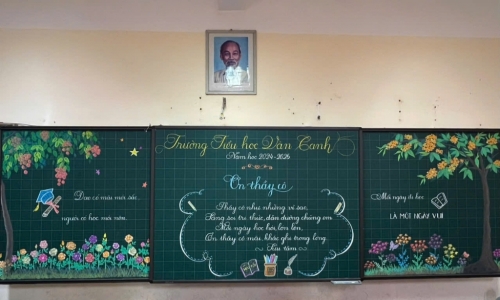 Trường Tiểu học Vân Canh
Năm học 2024-2025
Dao có mài mới sắc,
người có học mới nên.
Ơn thầy cô
Thầy cô như những vì sao,
Sáng soi tri thức, dẫn đường chúng em.
Mỗi ngày học hỏi, lớn lên,
Ơn thầy cô mãi, khắc ghi trong lòng.
Sưu tầm
Mỗi ngày đi học
LÀ MỘT NGÀY VUI